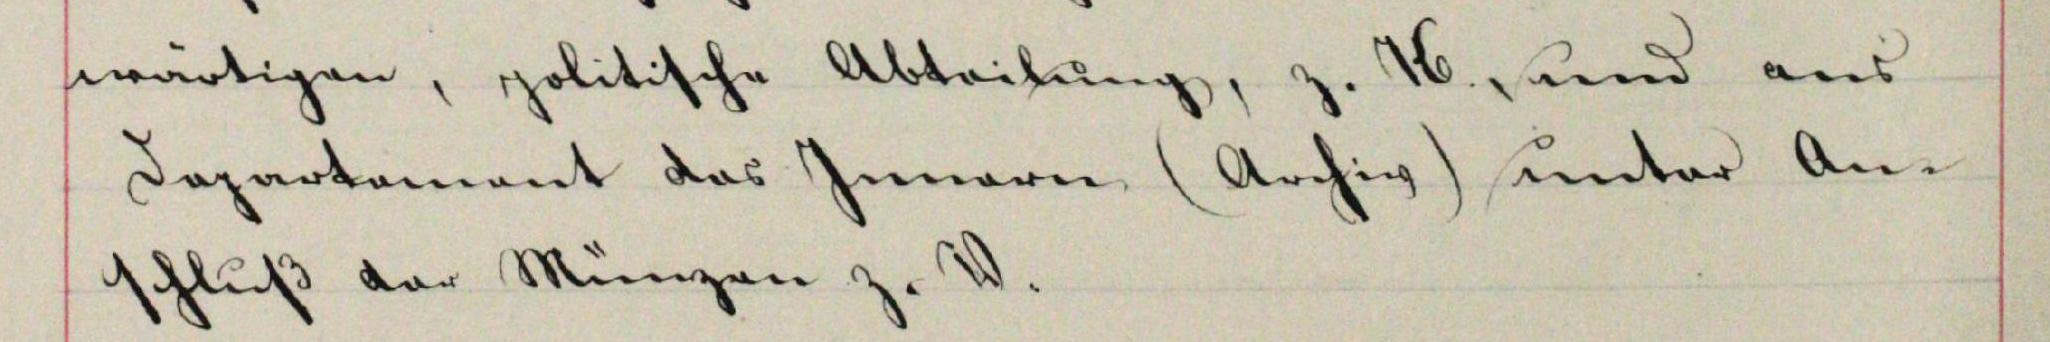 wärtigen, politische Abteilung, z. K., und ans
Departement des Innern (Archiv) unter An-
schluß der Münzen z. V.